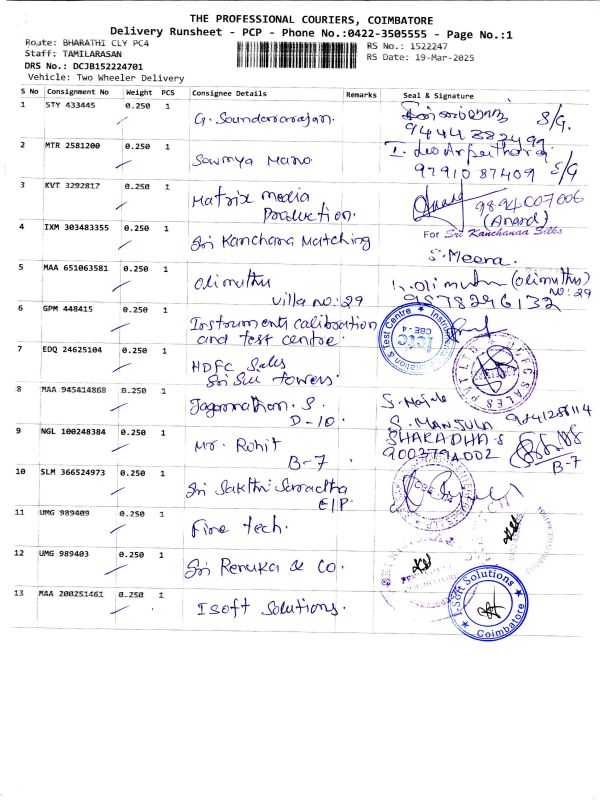 THE PROFESSIONAL COURIERS, COIMBATORE
Delivery Runsheet - PCP - Phone No.:0422-3505555 - Page No.:1
Route: BHARATHI CLY PC4
RS No.: 1522247
Staff: TAMILARASAN
RS Date: 19-Mar-2025
DRS No.: DCJB152224701
Vehicle: Two Wheeler Delivery
S No Consignment No Weight PCS Consignee Details Remarks Seal & Signature
1 STY 433445 0.250 1 G. Soundararajan. S/G.
9444383499
2 MTR 2581200 0.250 1 Sowmya Mano
97910 87409 S/G
3 KVT 3292817 0.250 1 Matrix media
Production. 9894007006
(Anand)
4 IXM 303483355 0.250 1 Sri Kanchana Matching
For Sri Kanchanaa Silks
S. Meera.
5 MAA 651063581 0.250 1 Olimuthu
Villa no: 29
(Olimuthu)
NO: 29
9878296132
6 GPM 448415 0.250 1 Instruments calibration
and test centre.
Test Centre
ICTC
CBE - 4
7 EDQ 24625104 0.250 1 HDFC Sales
Sri Sui towers.
8 MAA 945414868 0.250 1 Jagannathan. S.
D-10.
S. MANJULA
9 NGL 100248384 0.250 1 Mr. Rohit
B-7
SHARADHA S
9003794002
B-7
10 SLM 366524973 0.250 1 Sri Sakthi Saradha
E/P.
11 UMG 989409 0.250 1 Fire tech.
12 UMG 989403 0.250 1 Sri Renuka & Co.
13 MAA 200251461 0.250 1 Isoft Solutions.
I-Soft Solutions
Coimbatore